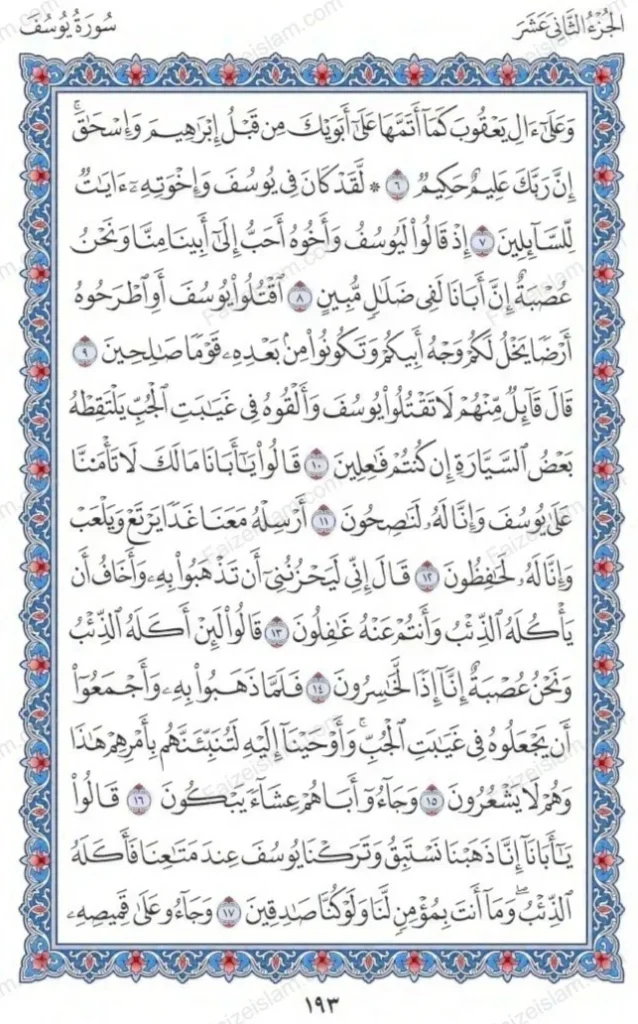 الجُزْءُ الثَّانِي عَشَرَ
سُورَةُ يُوسُفَ
وَعَلَىٰٓ ءَالِ يَعْقُوبَ كَمَآ أَتَمَّهَا عَلَىٰٓ أَبَوَيْكَ مِن قَبْلُ إِبْرَٰهِيمَ وَإِسْحَٰقَۚ
إِنَّ رَبَّكَ عَلِيمٌ حَكِيمٌ ٦ ۞ لَّقَدْ كَانَ فِي يُوسُفَ وَإِخْوَتِهِۦٓ ءَايَٰتٌ
لِّلسَّآئِلِينَ ٧ إِذْ قَالُوا۟ لَيُوسُفُ وَأَخُوهُ أَحَبُّ إِلَىٰٓ أَبِينَا مِنَّا وَنَحْنُ
عُصْبَةٌ إِنَّ أَبَانَا لَفِي ضَلَٰلٍ مُّبِينٍ ٨ ٱقْتُلُوا۟ يُوسُفَ أَوِ ٱطْرَحُوهُ
أَرْضًا يَخْلُ لَكُمْ وَجْهُ أَبِيكُمْ وَتَكُونُوا۟ مِنۢ بَعْدِهِۦ قَوْمًا صَٰلِحِينَ ٩
قَالَ قَآئِلٌ مِّنْهُمْ لَا تَقْتُلُوا۟ يُوسُفَ وَأَلْقُوهُ فِي غَيَٰبَتِ ٱلْجُبِّ يَلْتَقِطْهُ
بَعْضُ ٱلسَّيَّارَةِ إِن كُنتُمْ فَٰعِلِينَ ١٠ قَالُوا۟ يَٰٓأَبَانَا مَا لَكَ لَا تَأْمَ۫نَّا
عَلَىٰ يُوسُفَ وَإِنَّا لَهُۥ لَنَٰصِحُونَ ١١ أَرْسِلْهُ مَعَنَا غَدًا يَرْتَعْ وَيَلْعَبْ
وَإِنَّا لَهُۥ لَحَٰفِظُونَ ١٢ قَالَ إِنِّي لَيَحْزُنُنِيٓ أَن تَذْهَبُوا۟ بِهِۦ وَأَخَافُ أَن
يَأْكُلَهُ ٱلذِّئْبُ وَأَنتُمْ عَنْهُ غَٰفِلُونَ ١٣ قَالُوا۟ لَئِنْ أَكَلَهُ ٱلذِّئْبُ
وَنَحْنُ عُصْبَةٌ إِنَّآ إِذًا لَّخَٰسِرُونَ ١٤ فَلَمَّا ذَهَبُوا۟ بِهِۦ وَأَجْمَعُوٓا۟
أَن يَجْعَلُوهُ فِي غَيَٰبَتِ ٱلْجُبِّۚ وَأَوْحَيْنَآ إِلَيْهِ لَتُنَبِّئَنَّهُم بِأَمْرِهِمْ هَٰذَا
وَهُمْ لَا يَشْعُرُونَ ١٥ وَجَآءُوٓ أَبَاهُمْ عِشَآءً يَبْكُونَ ١٦ قَالُوا۟
يَٰٓأَبَانَآ إِنَّا ذَهَبْنَا نَسْتَبِقُ وَتَرَكْنَا يُوسُفَ عِندَ مَتَٰعِنَا فَأَكَلَهُ
ٱلذِّئْبُۖ وَمَآ أَنتَ بِمُؤْمِنٍ لَّنَا وَلَوْ كُنَّا صَٰدِقِينَ ١٧ وَجَآءُو عَلَىٰ قَمِيصِهِۦ
١٩٣
Faizeislam.com